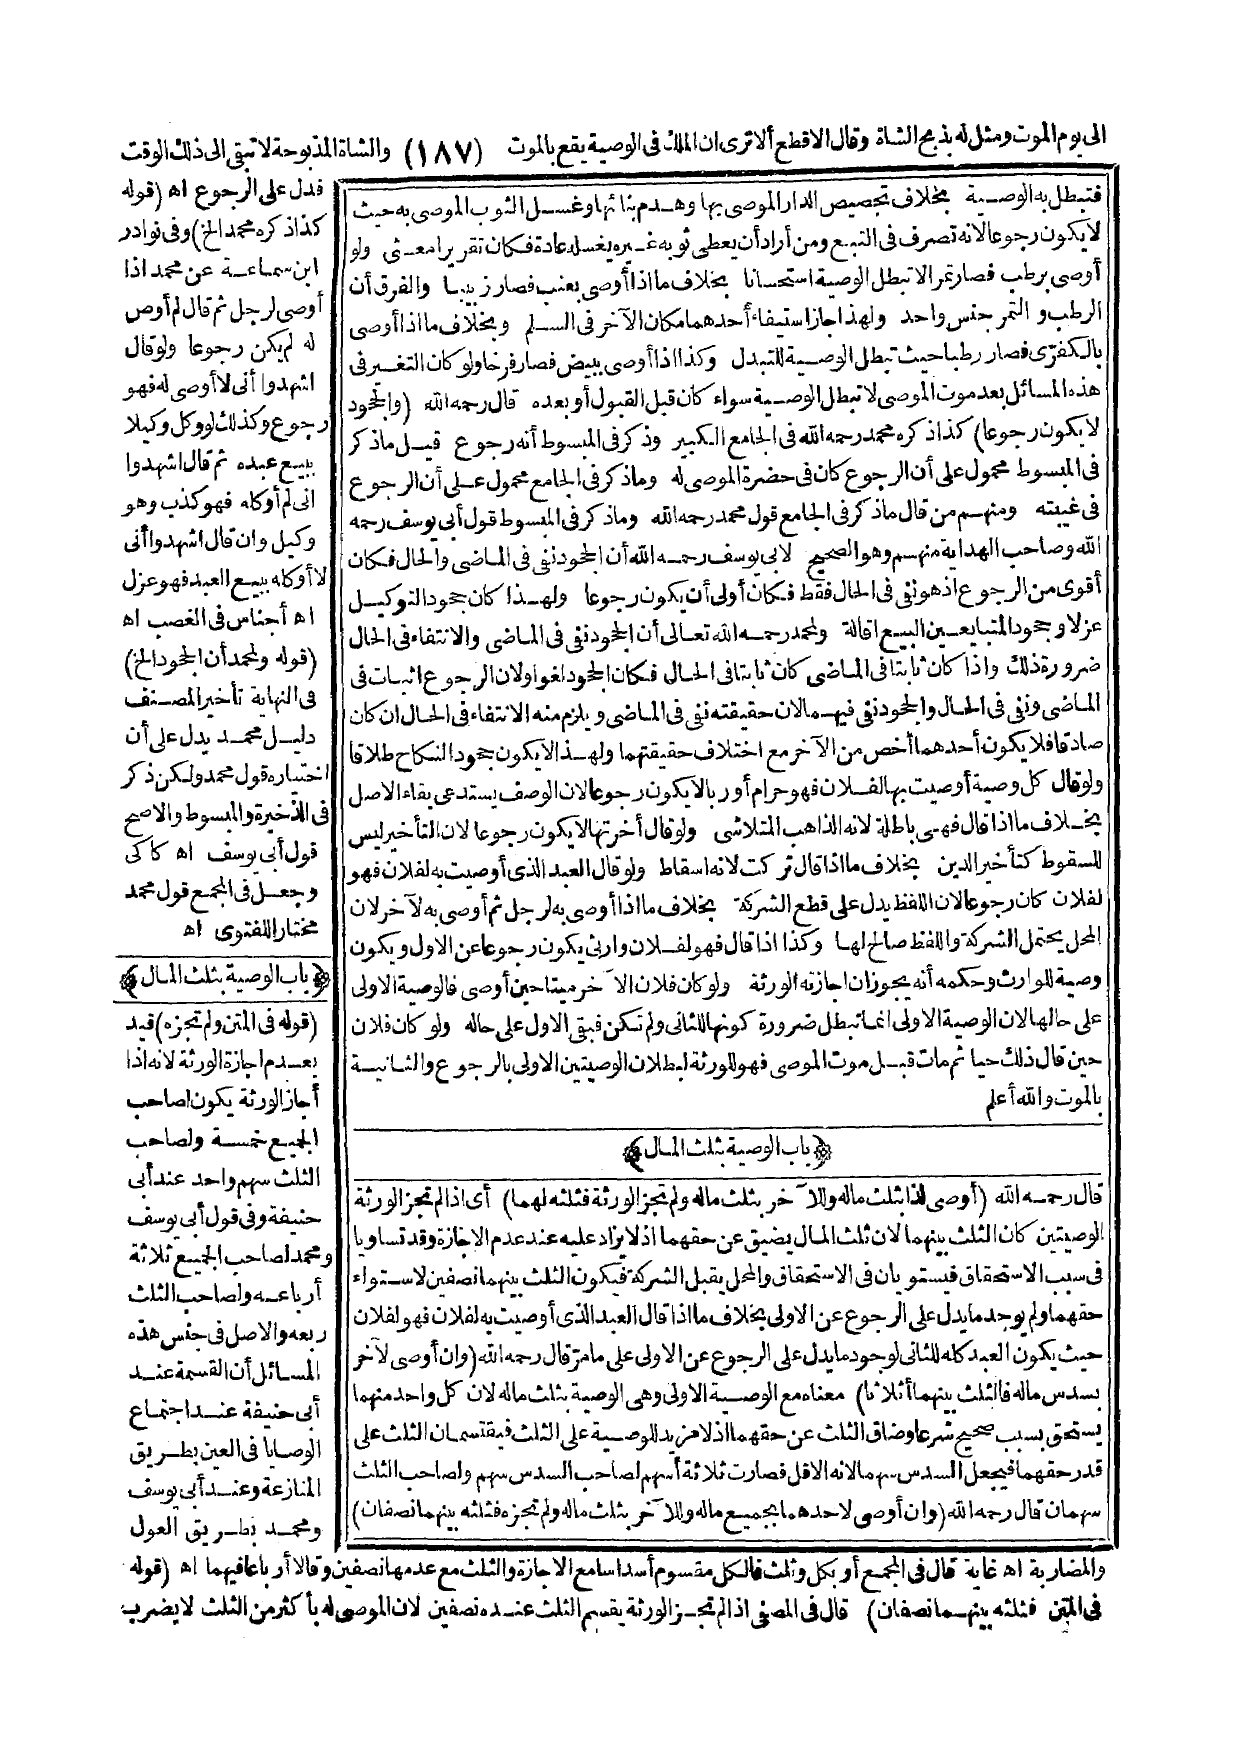 الى يوم الموت ومثل له بذبح الشاة وقال الاقطع ألا ترى ان الملك فى الوصية يقع بالموت (١٨٧) والشاة المذبوحة لا تبقى الى ذلك الوقت
فتبطل به الوصية بخلاف تجصيص الدار الموصى بها وهدم بنائها وغسل الثوب الموصى به حيث
لا يكون رجوعا لانه تصرف فى التبع ومن أراد أن يعطى ثوبه غيره يغسله عادة فكان تقريرا معنى ولو
أوصى برطب فصار تمرا لا تبطل الوصية استحسانا بخلاف ما اذا أوصى بعنب فصار زبيبا والفرق أن
الرطب والتمر جنس واحد ولهذا جاز استيفاء أحدهما مكان الآخر فى السلم وبخلاف ما اذا أوصى
بالكفرى فصار رطبا حيث تبطل الوصية للتبدل وكذا اذا أوصى ببيض فصار فرخا ولو كان التغير فى
هذه المسائل بعد موت الموصى لا تبطل الوصية سواء كان قبل القبول أو بعده قال رحمه الله (والجحود
لا يكون رجوعا) كذا ذكره محمد رحمه الله فى الجامع الكبير وذكر فى المبسوط أنه رجوع قيل ما ذكر
فى المبسوط محمول على أن الرجوع كان فى حضرة الموصى له وما ذكر فى الجامع محمول على أن الرجوع
فى غيبته ومنهم من قال ما ذكر فى الجامع قول محمد رحمه الله وما ذكر فى المبسوط قول أبى يوسف رحمه
الله وصاحب الهداية منهم وهو الصحيح لابى يوسف رحمه الله أن الجحود نفى فى الماضى والحال فكان
أقوى من الرجوع اذ هو نفى فى الحال فقط فكان أولى أن يكون رجوعا ولهذا كان جحود التوكيل
عزلا وجحود المتبايعين البيع اقالة ولمحمد رحمه الله تعالى أن الجحود نفى فى الماضى والانتفاء فى الحال
ضرورة ذلك واذا كان ثابتا فى الماضى كان ثابتا فى الحال فكان الجحود لغوا ولان الرجوع اثبات فى
الماضى ونفى فى الحال والجحود نفى فيهما لان حقيقته نفى فى الماضى ويلزم منه الانتفاء فى الحال ان كان
صادقا فلا يكون أحدهما أخص من الآخر مع اختلاف حقيقتهما ولهذا لا يكون جحود النكاح طلاقا
ولو قال كل وصية أوصيت بها لفلان فهو حرام أو ربا لا يكون رجوعا لان الوصف يستدعى بقاء الاصل
بخلاف ما اذا قال فهى باطلة لانه الذاهب المتلاشى ولو قال أخرتها لا يكون رجوعا لان التأخير ليس
للسقوط كتأخير الدين بخلاف ما اذا قال تركت لانه اسقاط ولو قال العبد الذى أوصيت به لفلان فهو
لفلان كان رجوعا لان اللفظ يدل على قطع الشركة بخلاف ما اذا أوصى به لرجل ثم أوصى به لآخر لان
المحل يحتمل الشركة واللفظ صالح لها وكذا اذا قال فهو لفلان وارثى يكون رجوعا عن الاول ويكون
وصية للوارث وحكمه أنه يجوز ان اجازته الورثة ولو كان فلان الآخر ميتا حين أوصى فالوصية الاولى
على حالها لان الوصية الاولى انما تبطل ضرورة كونها للثانى ولم تكن فبقى الاول على حاله ولو كان فلان
حين قال ذلك حيا ثم مات قبل موت الموصى فهو للورثة لبطلان الوصيتين الاولى بالرجوع والثانية
بالموت والله أعلم
﴿باب الوصية بثلث المال﴾
قال رحمه الله (أوصى لذا بثلث ماله وللآخر بثلث ماله ولم تجز الورثة فثلثه لهما) أى اذا لم تجز الورثة
الوصيتين كان الثلث بينهما لان ثلث المال يضيق عن حقهما اذ لا يزاد عليه عند عدم الاجازة وقد تساويا
فى سبب الاستحقاق فيستويان فى الاستحقاق والمحل يقبل الشركة فيكون الثلث بينهما نصفين لاستواء
حقهما ولم يوجد ما يدل على الرجوع عن الاولى بخلاف ما اذا قال العبد الذى أوصيت به لفلان فهو لفلان
حيث يكون العبد كله للثانى لوجود ما يدل على الرجوع عن الاولى على ما مر قال رحمه الله (وان أوصى لآخر
بسدس ماله فالثلث بينهما أثلاثا) معناه مع الوصية الاولى وهى الوصية بثلث ماله لان كل واحد منهما
يستحق بسبب صحيح شرعا وضاق الثلث عن حقهما اذ لا مزيد للوصية على الثلث فيقتسمان الثلث على
قدر حقهما فيجعل السدس سهما لانه الاقل فصارت ثلاثة أسهم لصاحب السدس سهم ولصاحب الثلث
سهمان قال رحمه الله (وان أوصى لاحدهما بجميع ماله وللآخر بثلث ماله ولم تجزه فثلثه بينهما نصفان)
فدل على الرجوع اه (قوله
كذا ذكره محمد الخ) وفى نوادر
ابن سماعة عن محمد اذا
أوصى لرجل ثم قال لم أوص
له لم يكن رجوعا ولو قال
اشهدوا أنى لا أوصى له فهو
رجوع وكذلك لو وكل وكيلا
ببيع عبده ثم قال اشهدوا
انى لم أوكله فهو كذب وهو
وكيل وان قال اشهدوا أنى
لا أوكله ببيع العبد فهو عزل
اه أجناس فى الغصب اه
(قوله ولمحمد أن الجحود الخ)
فى النهاية تأخير المصنف
دليل محمد يدل على أن
اختياره قول محمد ولكن ذكر
فى الذخيرة والمبسوط والاصح
قول أبى يوسف اه كاكى
وجعل فى المجمع قول محمد
مختارا للفتوى اه
﴿باب الوصية بثلث المال﴾
(قوله فى المتن ولم تجزه) قيد
بعدم اجازة الورثة لانه اذا
أجاز الورثة يكون لصاحب
الجميع خمسة ولصاحب
الثلث سهم واحد عند أبى
حنيفة وفى قول أبى يوسف
ومحمد لصاحب الجميع ثلاثة
أرباعه ولصاحب الثلث
ربعه والاصل فى جنس هذه
المسائل أن القسمة عند
أبى حنيفة عند اجتماع
الوصايا فى العين بطريق
المنازعة وعند أبى يوسف
ومحمد بطريق العول
والمضاربة اه غاية قال فى المجمع أو بكل وثلث فالكل مقسوم أسداسا مع الاجازة والثلث مع عدمها نصفين وقالا أرباعا فيهما اه (قوله
فى المتن فثلثه بينهما نصفان) قال فى المصفى اذا لم تجز الورثة يقسم الثلث عنده نصفين لان الموصى له بأكثر من الثلث لا يضرب